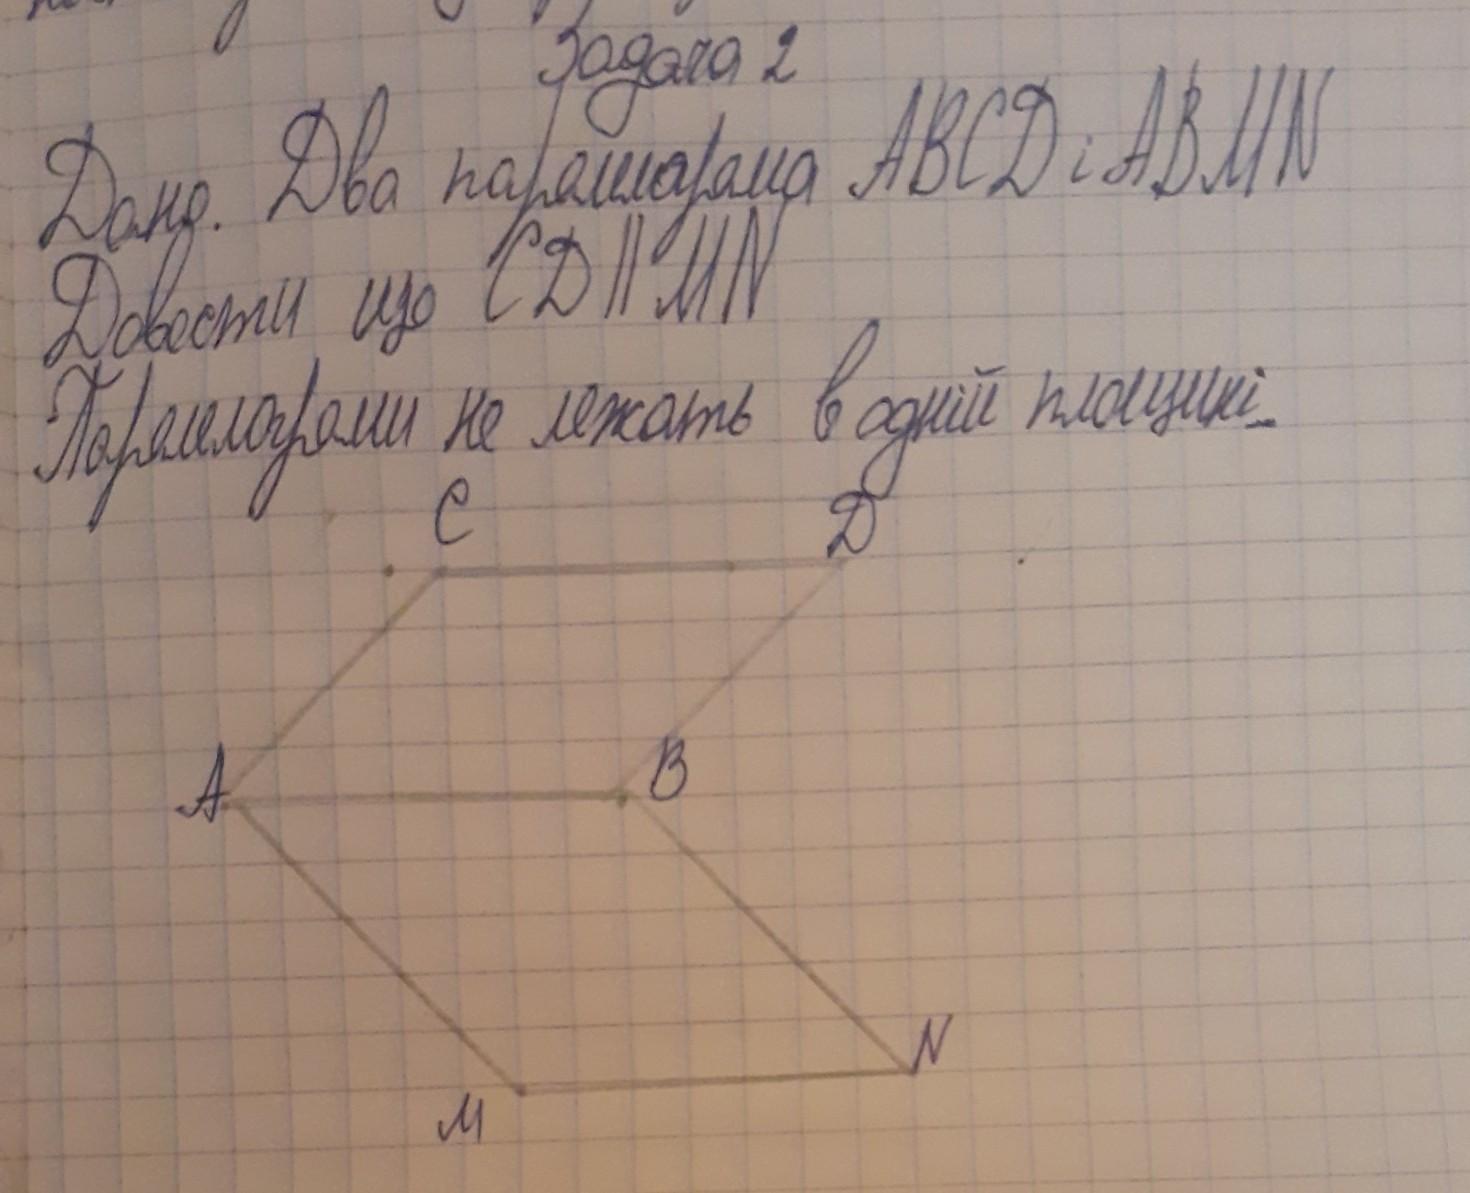 Задача 2
Дано. Два паралелограма ABCD і ABMN
Довести що CD || MN
Паралелограми не лежать в одній площині
C
D
A
B
N
M